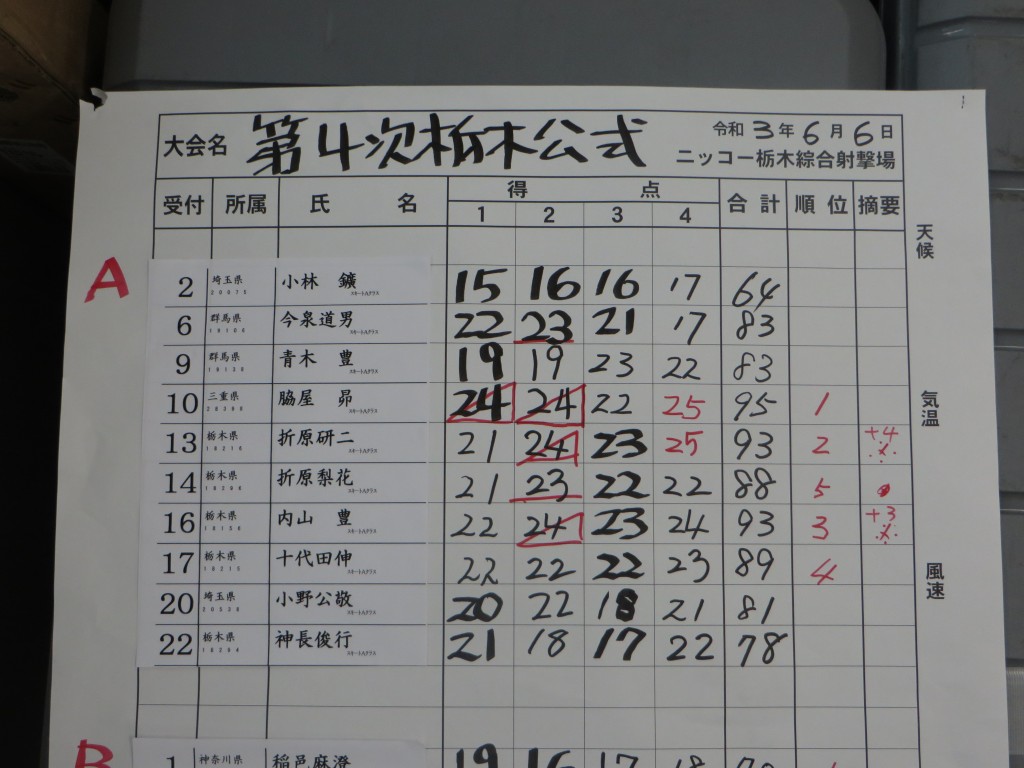 大会名 第4次栃木公式 令和 3年 6月 6日
ニッコー栃木綜合射撃場
受付 所属 氏 名 得 点 合計 順位 摘要
1 2 3 4
天候
A
2 埼玉県 小林 鑛 15 16 16 17 64
6 群馬県 今泉道男 22 23 21 17 83
9 群馬県 青木 豊 19 19 23 22 83
10 三重県 脇屋 昴 24 24 22 25 95 1
気温
13 栃木県 折原研二 21 24 23 25 93 2 +4
14 栃木県 折原梨花 21 23 22 22 88 5
16 栃木県 内山 豊 22 24 23 24 93 3 +3
17 栃木県 十代田伸 22 22 22 23 89 4
風速
20 埼玉県 小野公敬 20 22 18 21 81
22 栃木県 神長俊行 21 18 17 22 78
B
1 神奈川県 稲邑麻澄 19 16 17 18